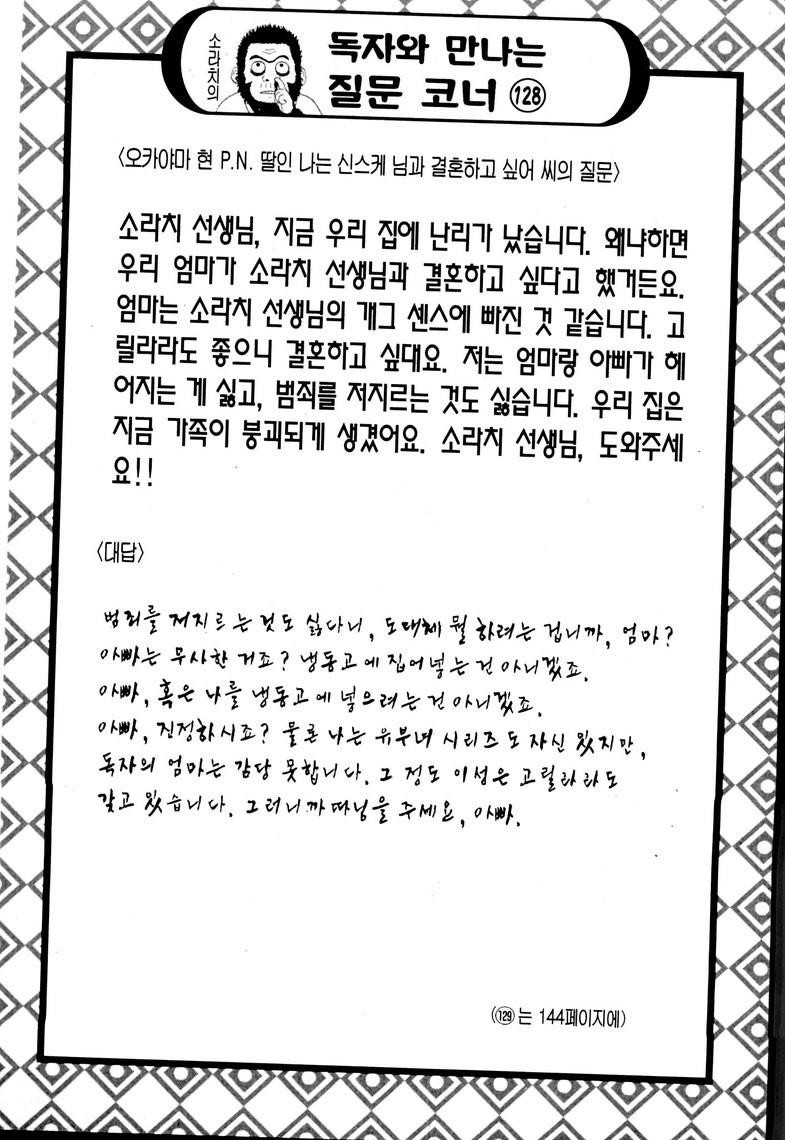 소라치의
독자와 만나는
질문 코너 128
〈오카야마 현 P.N. 딸인 나는 신스케 님과 결혼하고 싶어 씨의 질문〉
소라치 선생님, 지금 우리 집에 난리가 났습니다. 왜냐하면
우리 엄마가 소라치 선생님과 결혼하고 싶다고 했거든요.
엄마는 소라치 선생님의 개그 센스에 빠진 것 같습니다. 고
릴라라도 좋으니 결혼하고 싶대요. 저는 엄마랑 아빠가 헤
어지는 게 싫고, 범죄를 저지르는 것도 싫습니다. 우리 집은
지금 가족이 붕괴되게 생겼어요. 소라치 선생님, 도와주세
요!!
〈대답〉
범죄를 저지르는 것도 싫다니, 도대체 뭘 하려는 겁니까, 엄마?
아빠는 무사한 거죠? 냉동고에 집어넣는 건 아니겠죠.
아빠, 혹은 나를 냉동고에 넣으려는 건 아니겠죠.
아빠, 진정하시죠? 물론 나는 유부녀 시리즈도 자신 있지만,
독자의 엄마는 감당 못합니다. 그 정도 이성은 고릴라라도
갖고 있습니다. 그러니까 따님을 주세요, 아빠.
(129는 144페이지에)